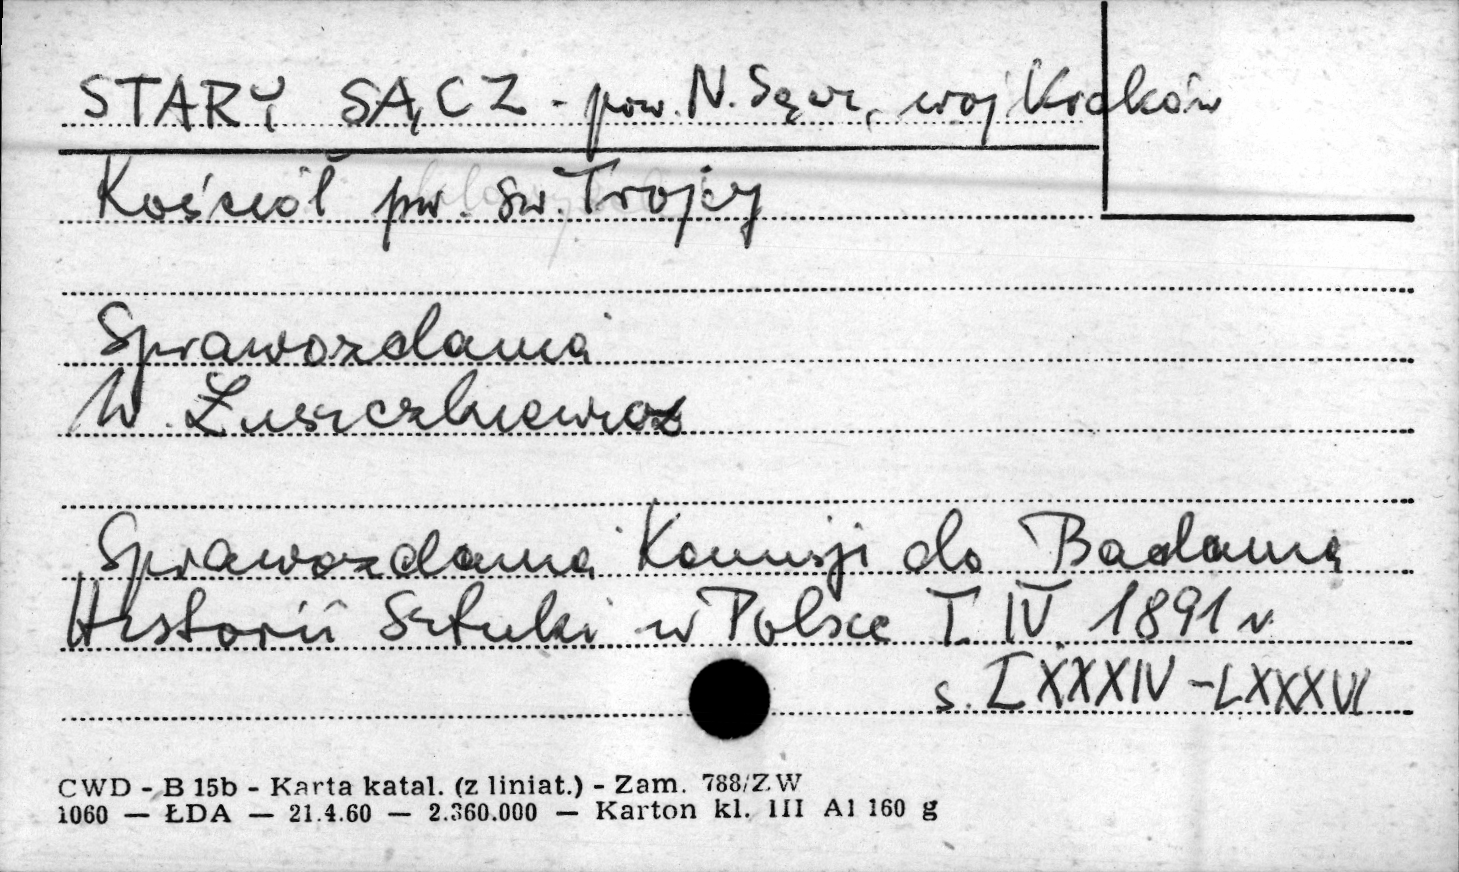 STARY SĄCZ - pow. N. Sącz, woj Kraków
Kościół pw. św. Trojcy
Sprawozdania
W. Łuszczkiewicz
Sprawozdania Komisji do Badania
Historii Sztuki w Polsce T. IV. 1891 r.
s. LXXXIV - LXXXVI
CWD - B 15b - Karta katal. (z liniat.) - Zam. 788/ZW
1060 — ŁDA — 21.4.60 — 2.360.000 — Karton kl. III A1 160 g